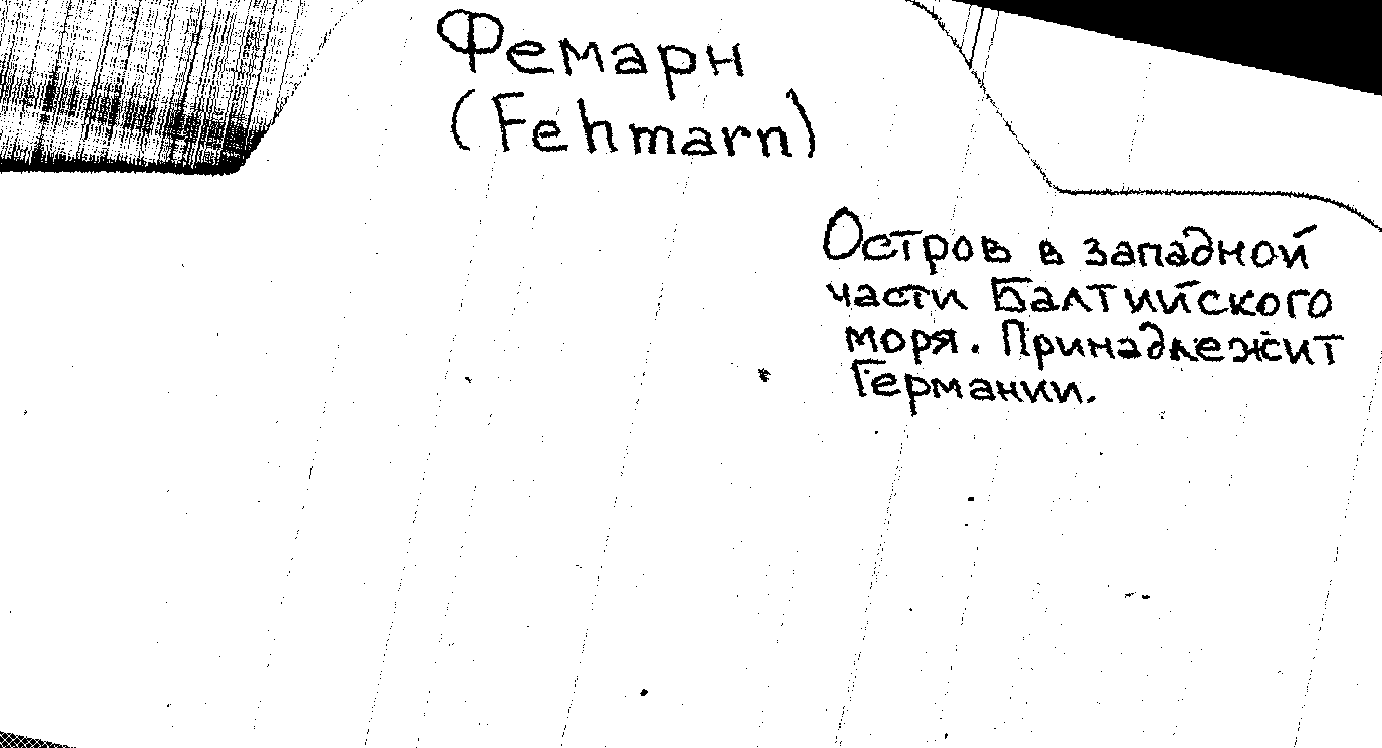 Фемарн
(Fehmarn)
Остров в западной
части Балтийского
моря. Принадлежит
Германии.